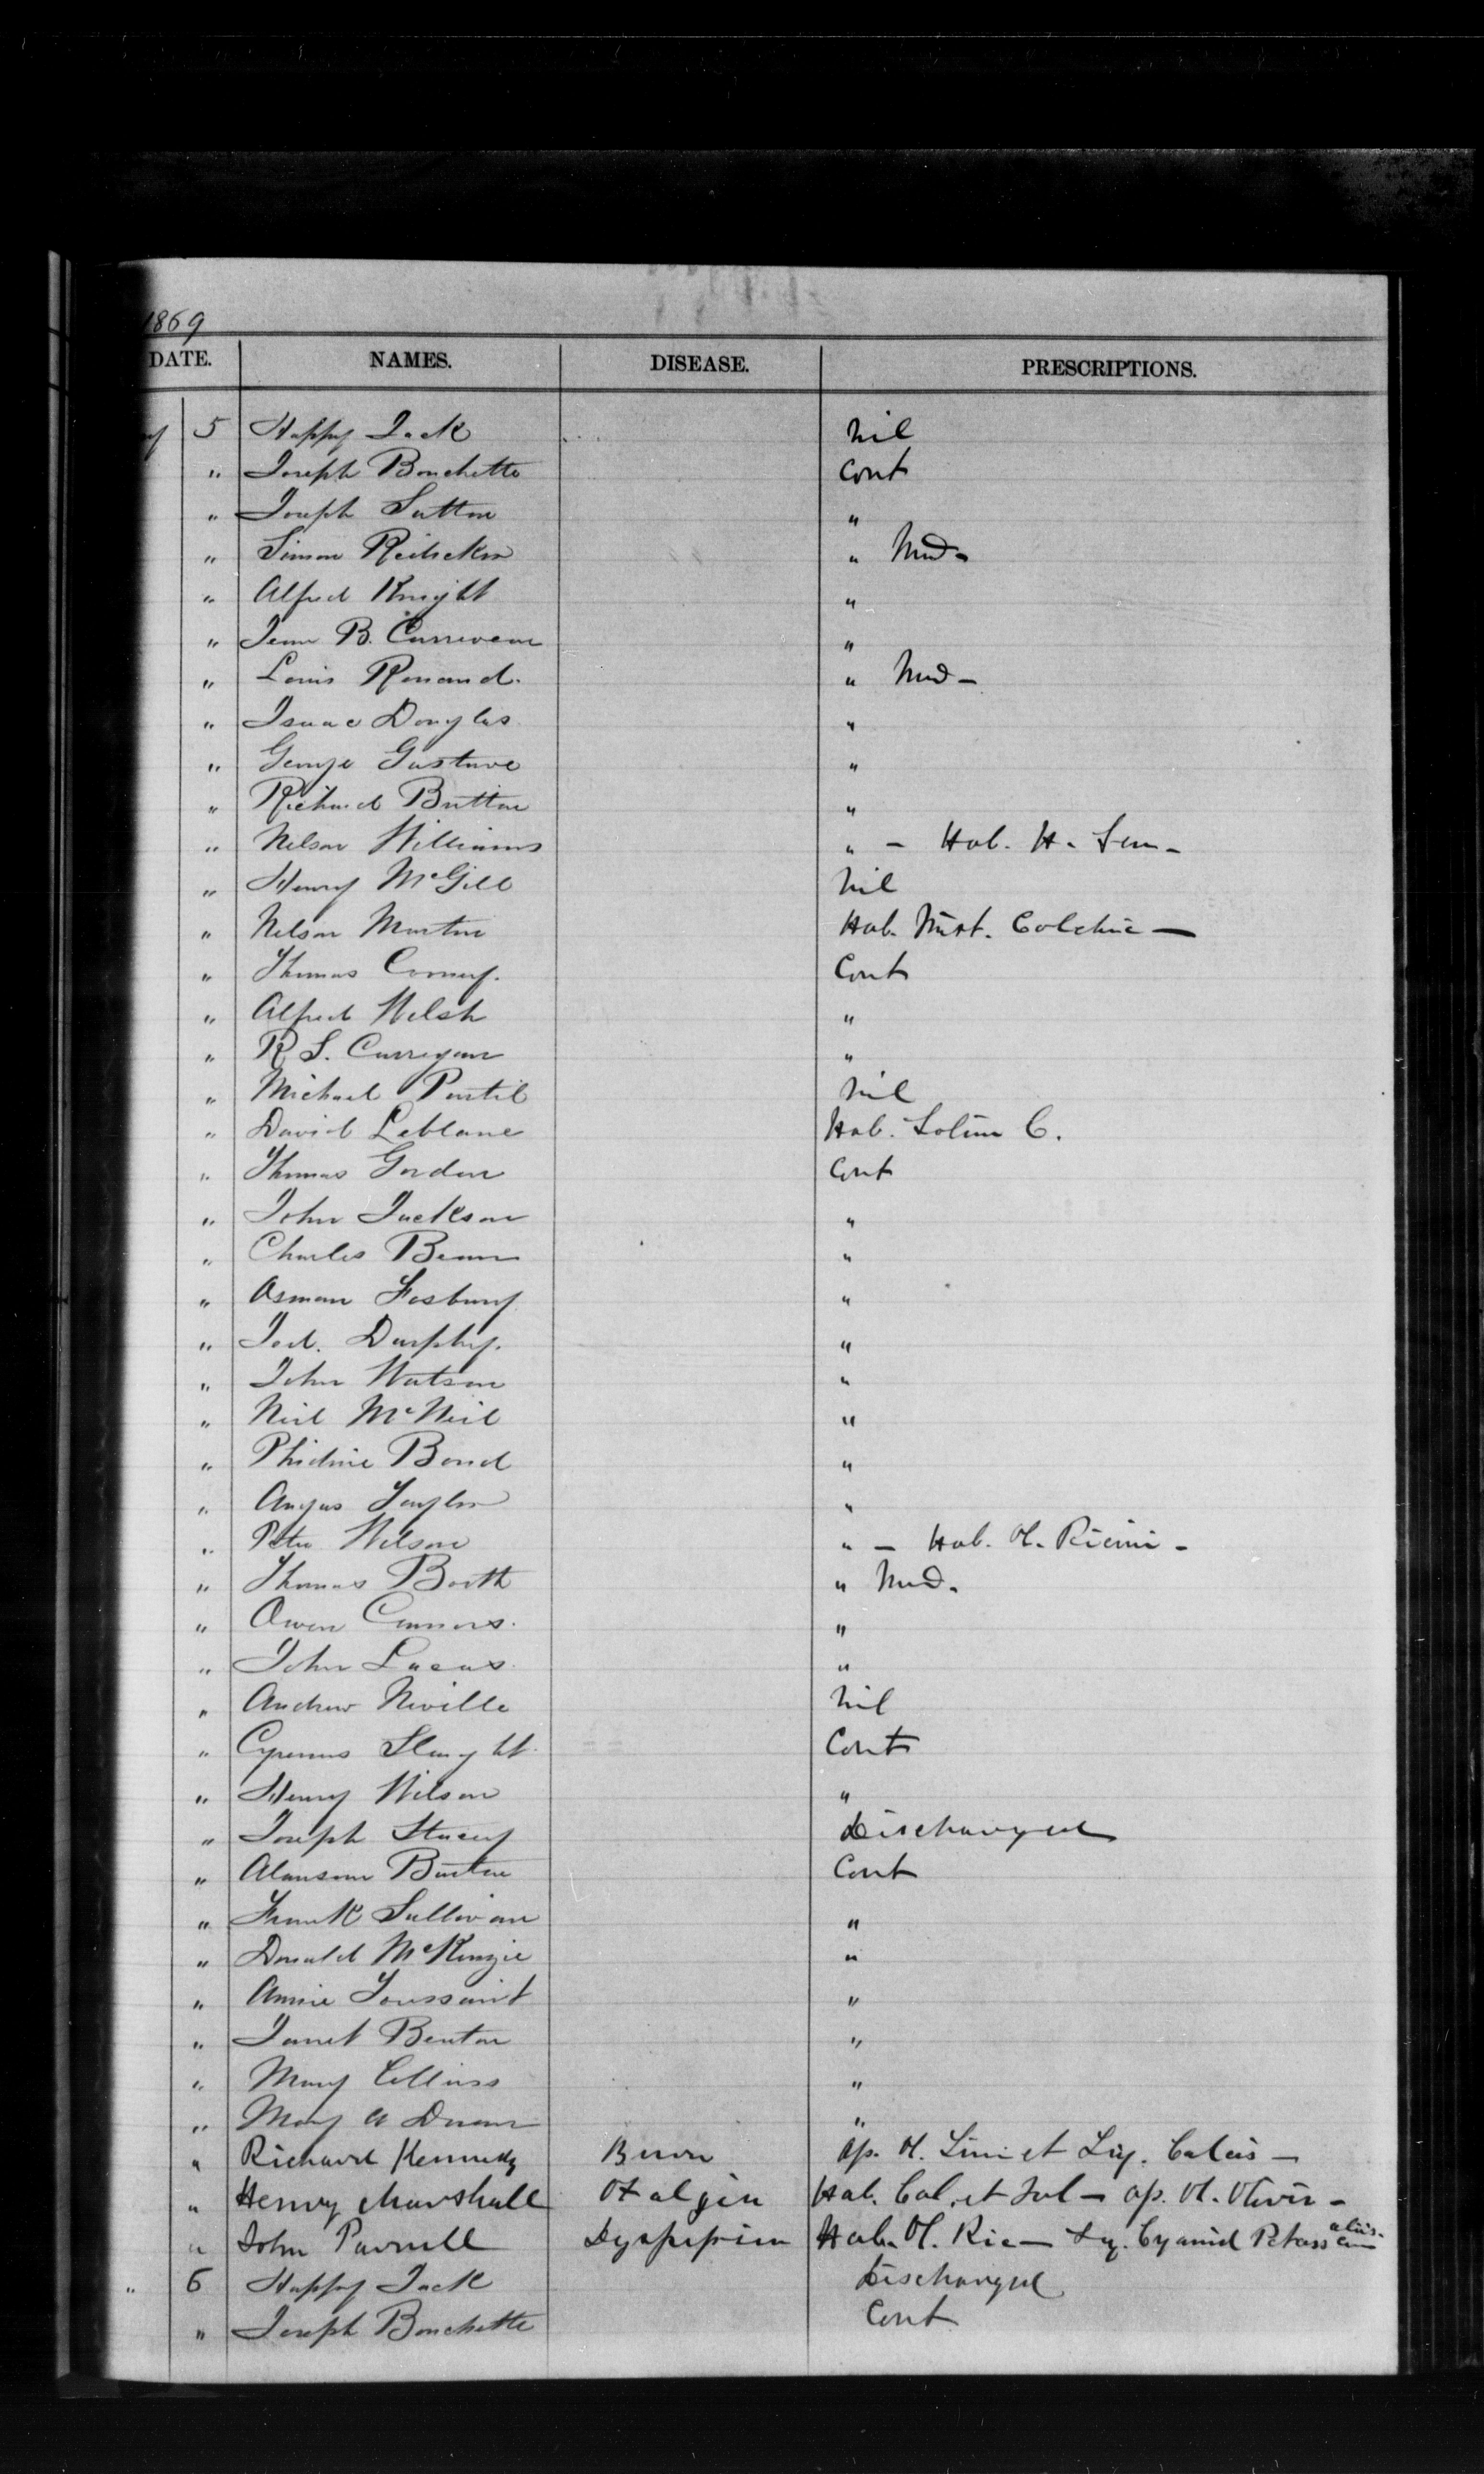 1869
DATE. NAMES. DISEASE. PRESCRIPTIONS.
5 Happy Jack nil
" Joseph Bouchette Cont
" Joseph Sutton "
" Simon " Mud -
" Alfred Knight "
" Jean B. Curriveau "
" Louis Renaud. " Mud -
" Isaac Douglas "
" George Gustave "
" Richard Button "
" Nelson Williams " - Hab. H. Sen -
" Henry McGill nil
" Nelson Martin Hab. Mist. Colchic -
" Thomas Comey. Cont
" Alfred Welsh "
" R S. Carrigan "
" Michael nil
" David Leblanc Hab. C.
" Thomas Gordon Cont
" John Jackson "
" Charles Bean "
" Osman Fosbury "
" Jod. Durphy. "
" John Watson "
" Neil McNeil "
" Phidime Bond "
" Angus Taylor "
" Peter Wilson " - Hab. Ol. Ricini -
" Thomas Booth " Mud.
" Owen Connors. "
" John Lucas. "
" Andrew Neville nil
" Cyrenus Slaught. Cont
" Henry Wilson "
" Joseph Stacey Discharged
" Alanson Burton Cont
" Frank Sullivan "
" Donald McKenzie "
" Annie Toussaint "
" Janet Benton "
" Mary Collins "
" Mary A Duran "
" Richard Kennedy Burn Ap. Ol. Lini et Liq. Calcis -
" Henry Marshall Otalgia Hab. Cal. et Jul - ap. Ol. Oliv -
" John Parnell Dyspepsia Hab. Ol. Ric - Cyanid Potass
" 6 Happy Jack Discharged
" Joseph Bouchette Cont